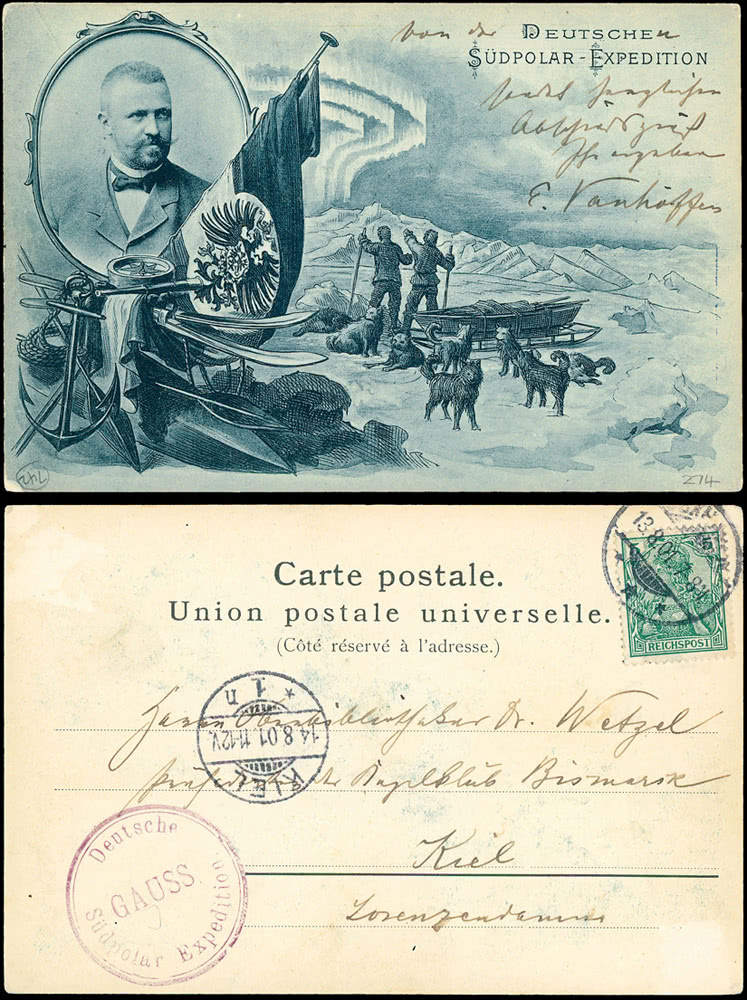 von der DEUTSCHEn
SÜDPOLAR-EXPEDITION
sendet herzlichen
Abschiedsgruß
Ihr ergebener
E. Vanhöffen
274
Carte postale.
Union postale universelle.
(Côté réservé à l'adresse.)
13.8.01
REICHSPOST
KIEL
14.8.01.11-12V.
1. n
Herrn Oberbibliothekar Dr. Wetzel
Präsident des Kegelklub Bismarck
Kiel
Lorenzendamm
Deutsche
GAUSS
Südpolar Expedition